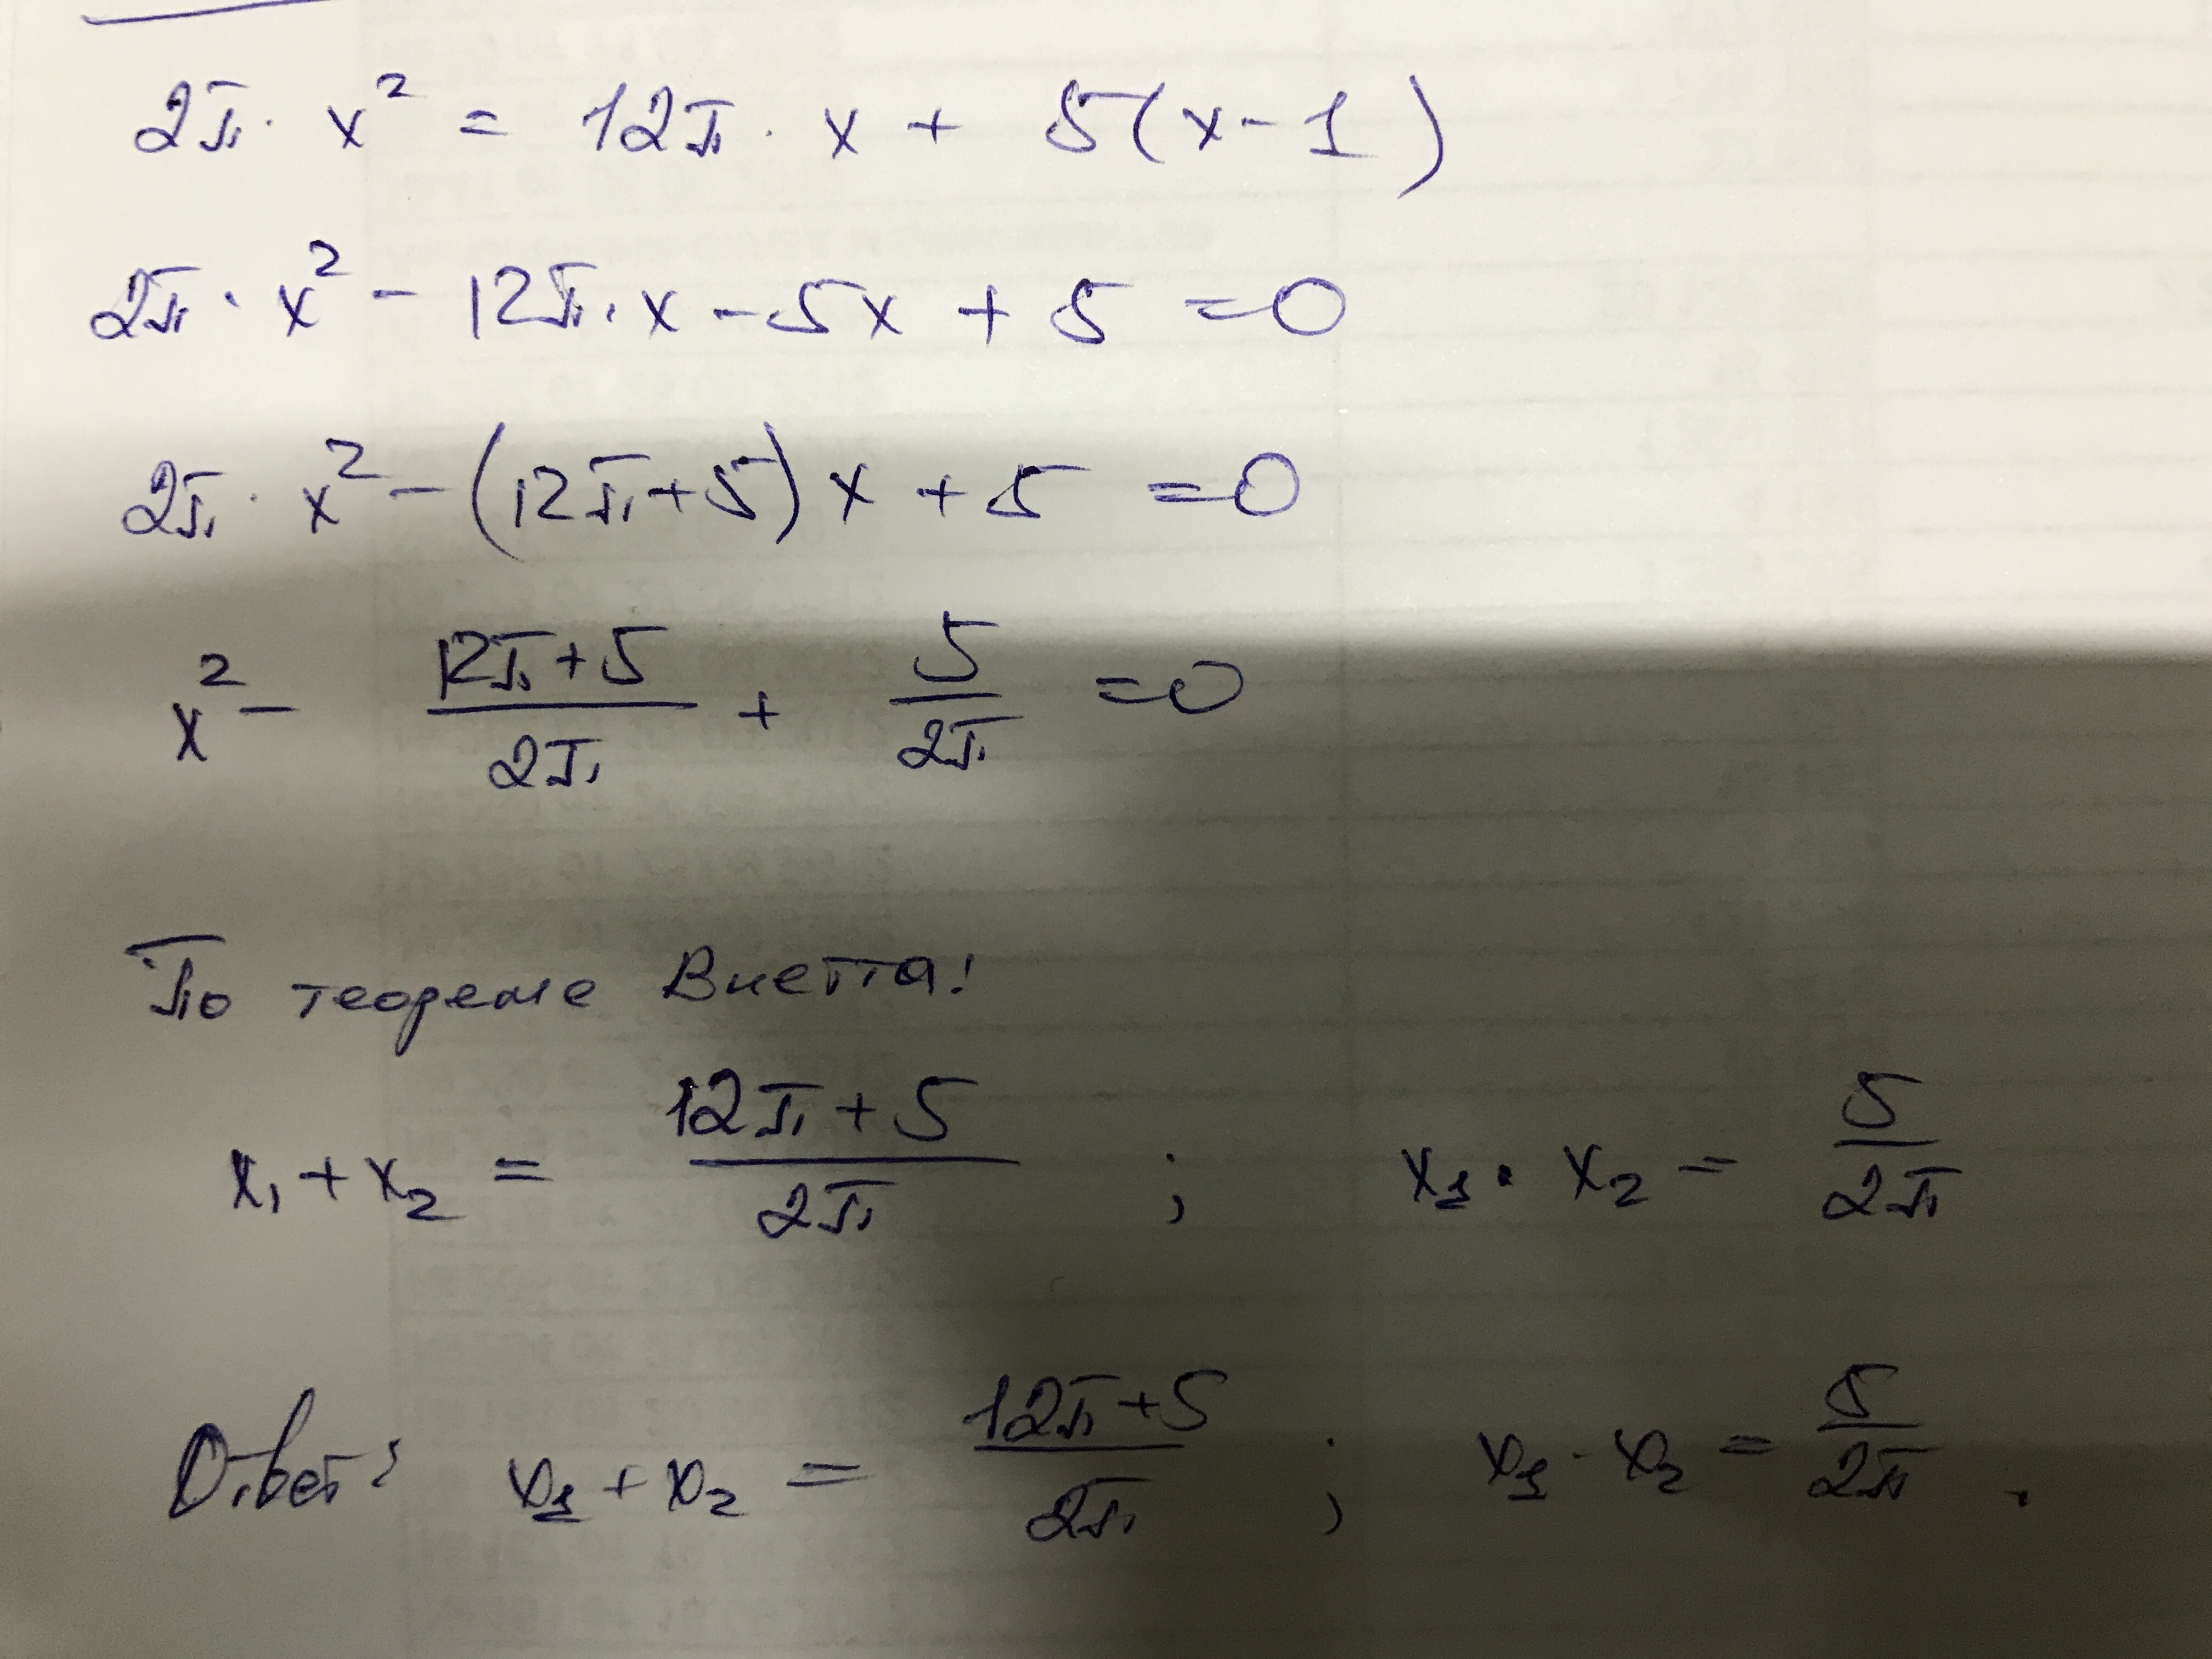 2π · x² = 12π · x + 5(x - 1)
2π · x² - 12π · x - 5x + 5 = 0
2π · x² - (12π + 5)x + 5 = 0
x² - (12π + 5)/(2π) + 5/(2π) = 0
По теореме Виетта!
x₁ + x₂ = (12π + 5)/(2π) ; x₁ · x₂ = 5/(2π)
Ответ: x₁ + x₂ = (12π + 5)/(2π) ; x₁ · x₂ = 5/(2π) .